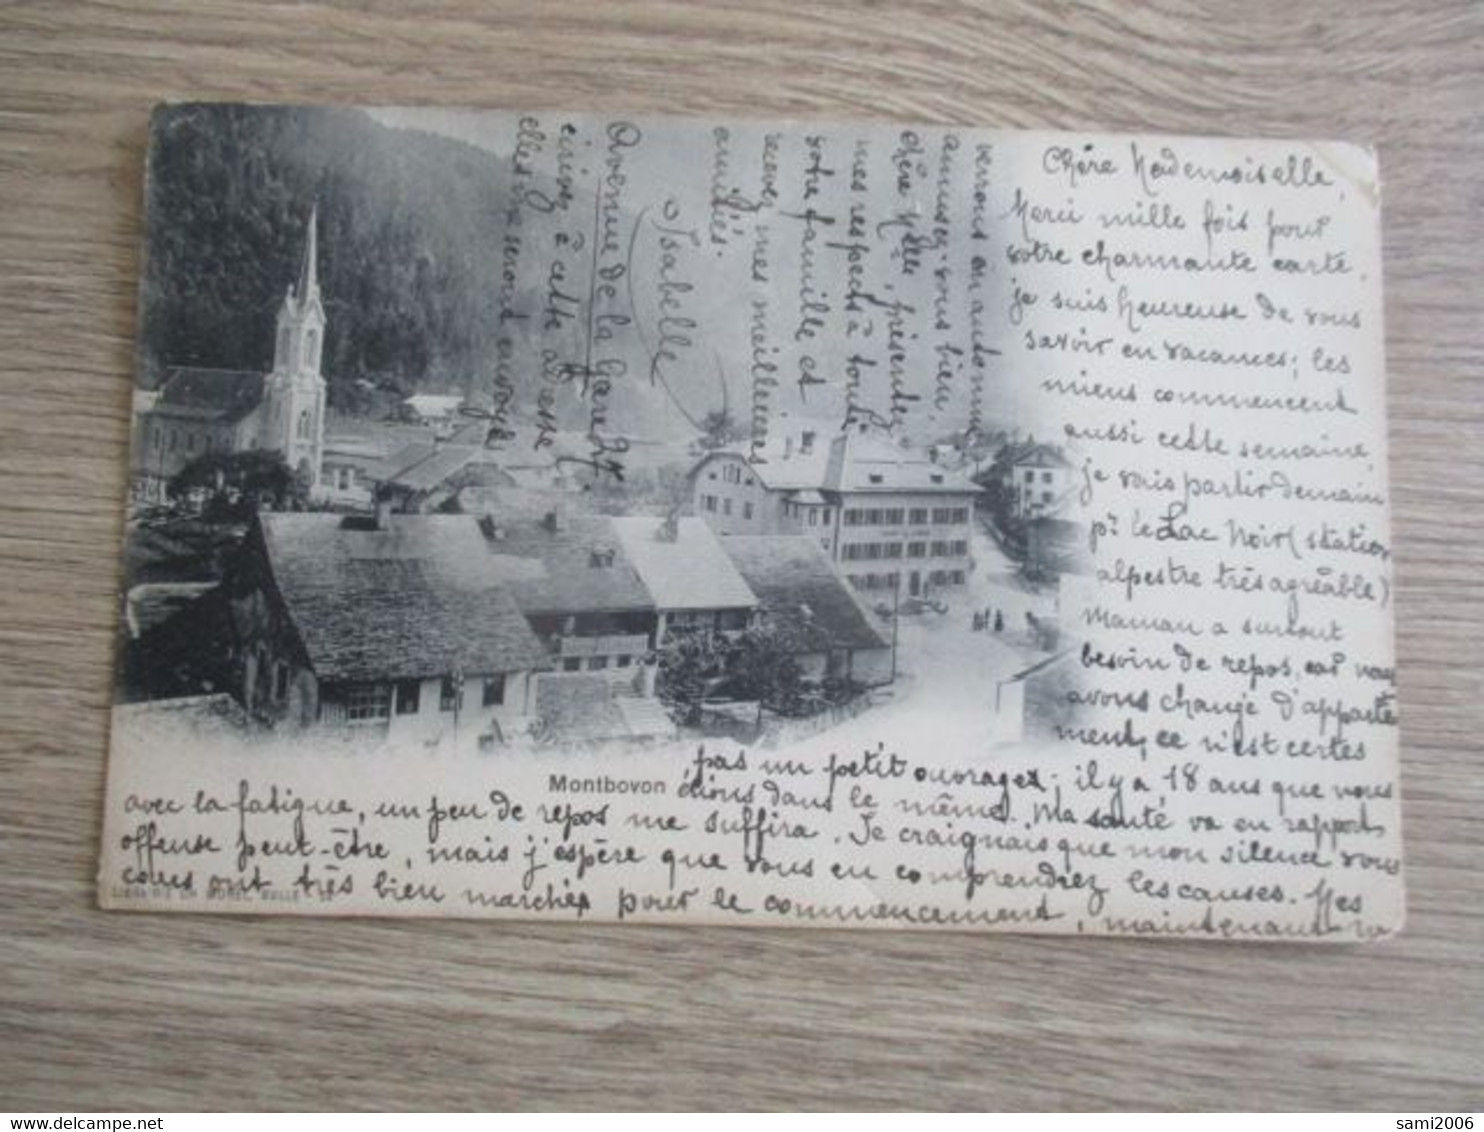 Chère Mademoiselle,
Merci mille fois pour
votre charmante carte.
je suis heureuse de vous
savoir en vacances; les
miens commencent
aussi cette semaine,
je vais partir demain
pr le Lac Noir (station
alpestre très agréable)
Maman a surtout
besoin de repos, car nous
avons changé d'apparte
ment, ce n'est certes
pas un petit ouvrage; il y a 18 ans que nous
étions dans le même. Ma santé va en rapport
avec la fatigue, un peu de repos me suffira. Je craignais que mon silence vous
offense peut-être, mais j'espère que vous en comprendrez les causes. Mes
ont très bien marché pour le commencement, maintenant
verrons en automne
amusez-vous bien,
chère Mlle, présentez
mes respects à toute
votre famille et
recevez mes meilleures
amitiés.
Isabelle
Avenue de la Gare 27.
écrivez à cette adresse
elles me seront envoyées
Montbovon